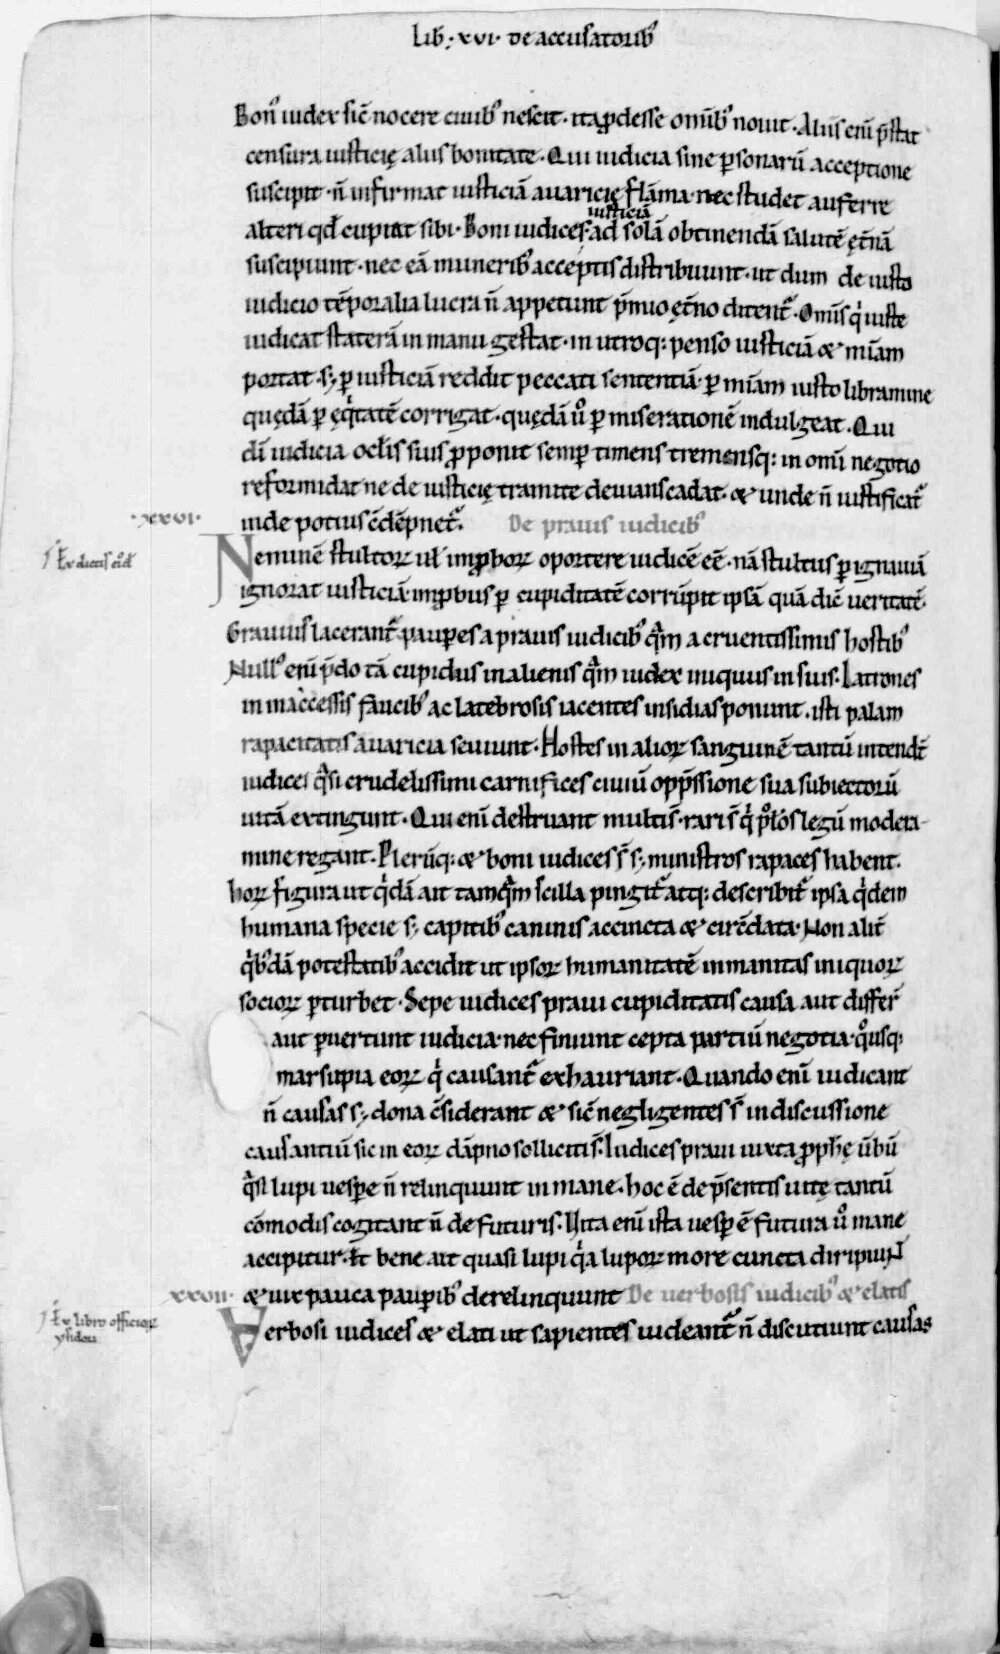 Lib̄. xvi. de accusatorib᷒
Bon᷒ iudex sic̄ nocere ciuib᷒ nescit. ita ꝓdesse omīb᷒ nouit. Aliis enī p̄stat
censura iusticię aliis bonitate. Qui iudicia sine ꝑsonarū acceptione
suscipit. n̄ infirmat iusticiā auaricię flāma. nec studet auferre
alteri qd̄ cupiat sibi. Boni iudices. iusticiā ad solā obtinendā salutē ęt̄nā
suscipiunt. nec eā munerib᷒ acceptis distribuunt. ut dum de iusto
iudicio tēporalia lucra n̄ appetunt p̄mio ęt̄no ditent᷑. Omīs qͥ iuste
iudicat staterā in manu gestat. in utroq; penso iusticiā & mīam
portat. s; ꝑ iusticiā reddit peccati sententiā. ꝑ mīam iusto libramine
quędā ꝑ ęqͥtatē corrigat. quędā u᷒ ꝑ miserationē indulgeat. Qui
dī iudicia oclīs suis ꝓponit semꝑ timens tremensq; in omī negotio
reformidat ne de iusticię tramite deuians cadat. & unde n̄ iustificat᷑
inde potius c̄dēpnet᷑. De prauis iudicib᷒
.xxvi.
Ex dictis eid̄
Neminē stultoꝝ ul̄ imꝓboꝝ oportere iudicē eē. nā stultus ꝑ ignauiā
ignorat iusticiā. imꝓbus ꝑ cupiditatē corrūpit ipsā quā dic̄ ueritatē.
Grauius lacerant᷑ pauꝑes a prauis iudicib᷒ qͣm a cruentissimis hostib᷒
Null᷒ enī p̄do tā cupidus in alienis qͣm iudex iniquus in suis. Latrones
in inaccessis faucib᷒ ac latebrosis iacentes insidias ponunt. isti palam
rapacitatis auaricia seuiunt. Hostes in alioꝝ sanguinē tantū intendt̄
iudices qͣsi crudelissimi carnifices ciuiū opp̄ssione sua subiectorū
uitā extingunt. Qui enī destruant multi s̄. rari s̄ qͥ pp̄l̄os legū modera-
mine regant. Plerūq; & boni iudices s̄ s; ministros rapaces habent.
hoꝝ figura ut qͥdā ait tamqͣm scilla pingit᷑ atq; describit᷑ ipsa qͥdem
humana specie s; capitib᷒ caninis accincta & circ̄data. Non alit̄
qͥb᷒dā potestatib᷒ accidit ut ipsoꝝ humanitatē inmanitas iniquoꝝ
socioꝝ ꝑturbet. Sepe iudices praui cupiditatis causa aut differt̄
aut ꝑuertunt iudicia. nec finiunt cepta partiū negotia. qͦusq;
marsupia eoꝝ qͥ causant᷑ exhauriant. Quando enī iudicant
n̄ causas s; dona c̄siderant & sic̄ negligentes s̄ in discussione
causantiū sic in eoꝝ dāpno solliciti s̄. Iudices praui iuxta ꝓph̄ę ūbū
qͣsi lupi uesꝑe n̄ relinquunt in mane. hoc ē de p̄sentis uitę tantū
cōmodis cogitant n̄ de futuris. Uita enī ista uesꝑ ē futura u᷒ mane
accipitur. Et bene ait quasi lupi qͣa lupoꝝ more cuncta diripiunt
.xxvii.
& uix pauca pauꝑib᷒ derelinquunt De uerbosis iudicib᷒ & elatis
Ex libro officioꝝ
ysidori
Verbosi iudices & elati ut sapientes uideant᷑ n̄ discutiunt causas